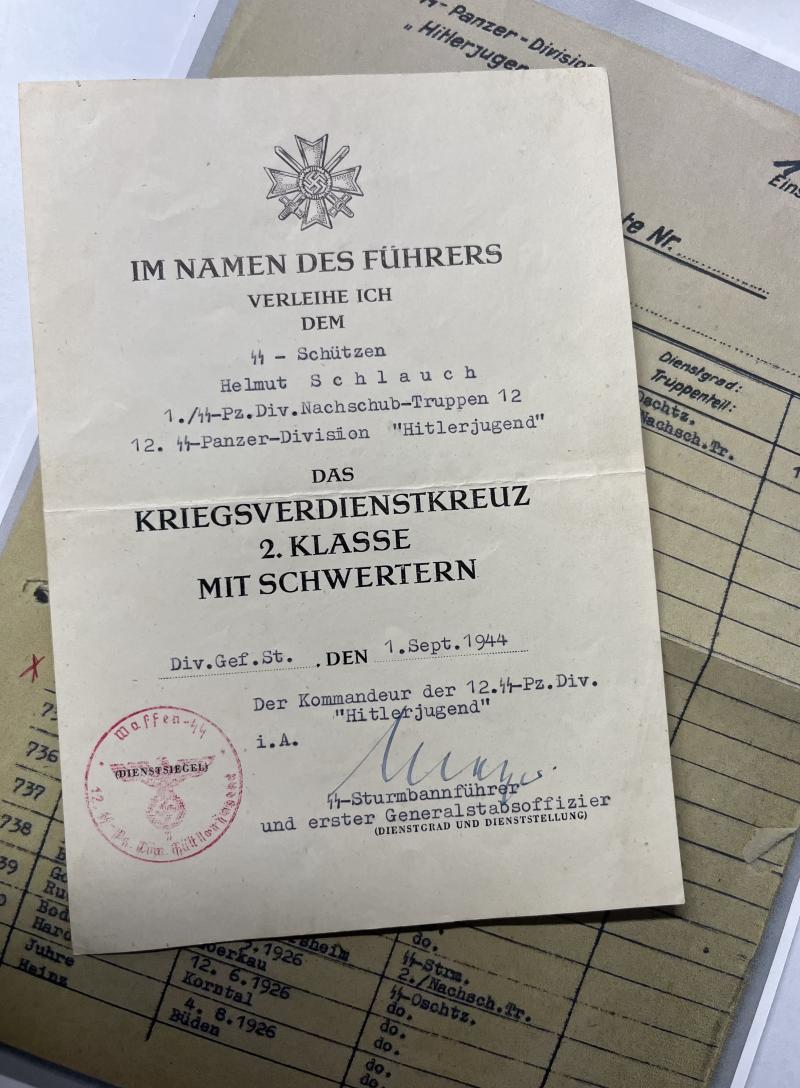 IM NAMEN DES FÜHRERS
VERLEIHE ICH
DEM
ᛋᛋ - Schützen
Helmut Schlauch
1./ᛋᛋ-Pz.Div.Nachschub-Truppen 12
12. ᛋᛋ-Panzer-Division "Hitlerjugend"
DAS
KRIEGSVERDIENSTKREUZ
2. KLASSE
MIT SCHWERTERN
Div.Gef.St. , DEN 1.Sept.1944
Der Kommandeur der 12.ᛋᛋ-Pz.Div.
"Hitlerjugend"
i.A.
ᛋᛋ-Sturmbannführer
und erster Generalstabsoffizier
(DIENSTGRAD UND DIENSTSTELLUNG)
Waffen-ᛋᛋ
(DIENSTSIEGEL)
-Panzer-Division
"Hitlerjugen
Nr.
Dienstgrad:
Truppenteil:
Oschtz.
Nachsch.Tr.
736
737
738
39
do.
.1926
ᛋᛋ-Strm.
2./Nachsch.Tr.
Juhre
12. 6.1926
ᛋᛋ-Oschtz.
Heinz
Korntal
do.
4. 8.1926
do.
Büden
do.
do.
do.